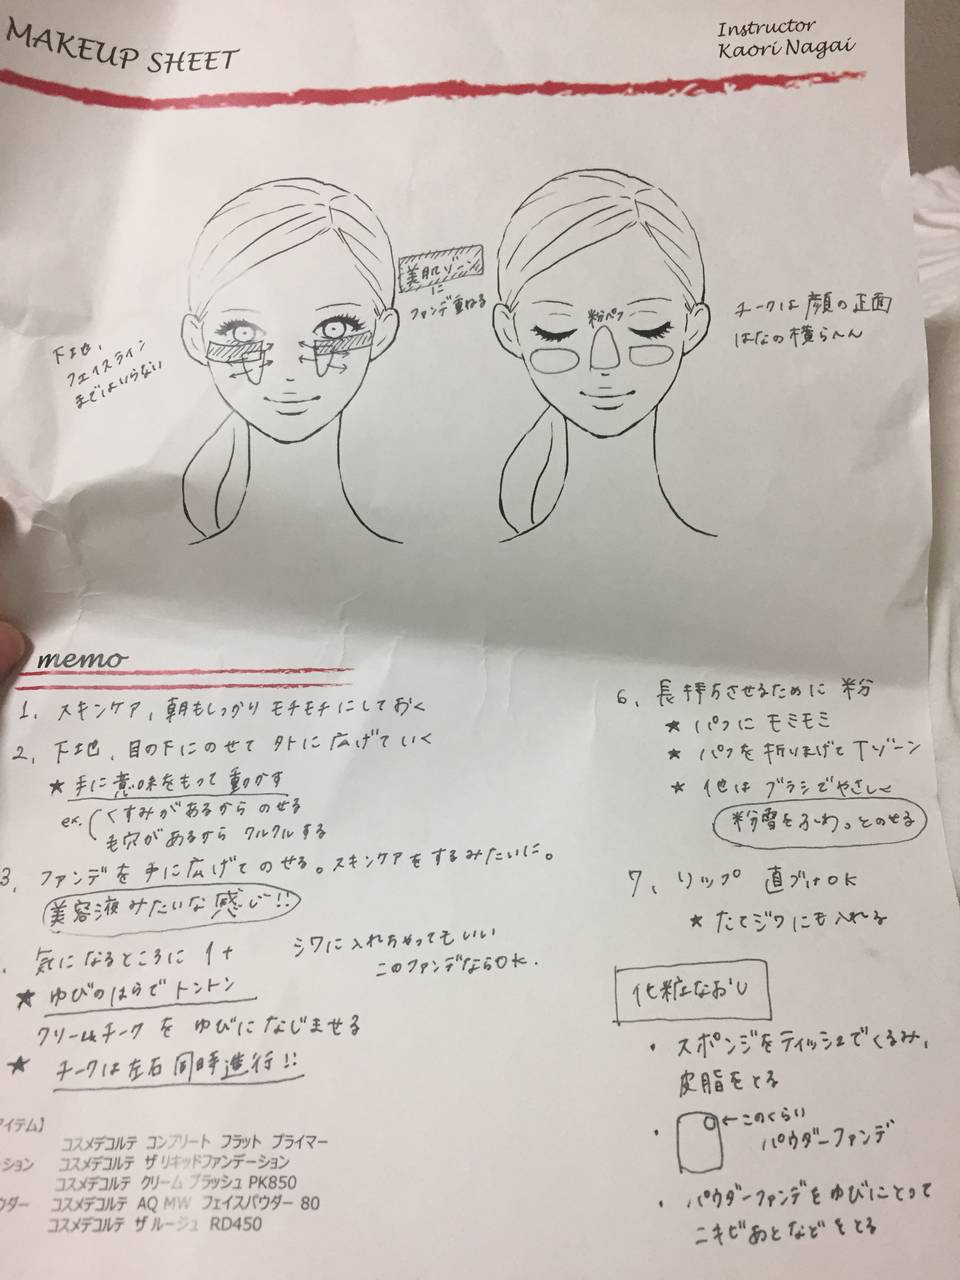 MAKEUP SHEET
Instructor
Kaori Nagai
美肌ゾーン
に
ファンデ重ねる
下地、
フェイスライン
まではいらない
粉パフ
チークは顔の正面
はなの横らへん
memo
1, スキンケア, 朝もしっかり モチモチにしておく
2, 下地, 目の下にのせて 外に広げていく
★手に意味をもって動かす
ex. くすみがあるから のせる
毛穴があるから クルクルする
3, ファンデを手に広げてのせる。スキンケアをするみたいに。
美容液みたいな感じ!!
気になるところに 1+
シワに入れちゃってもいい
このファンデならOK.
★ ゆびのはらでトントン
クリームチークを ゆびになじませる
★ チークは左右同時進行!!
アイテム】
コスメデコルテ コンプリート フラット プライマー
ーション コスメデコルテ ザ リキッドファンデーション
コスメデコルテ クリーム ブラッシュ PK850
ウダー コスメデコルテ AQ MW フェイスパウダー 80
コスメデコルテ ザ ルージュ RD450
6, 長持ちさせるために 粉
★ パフに モミモミ
★ パフを折りまげて Tゾーン
★ 他は ブラシでやさしく
粉雪をふわっとのせる
7、リップ 直づけOK
★ たてジワにも入れる
化粧なおし
・スポンジをティッシュでくるみ,
皮脂をとる
・ ←このくらい
パウダーファンデ
・パウダーファンデをゆびにとって
ニキビあとなどをとる